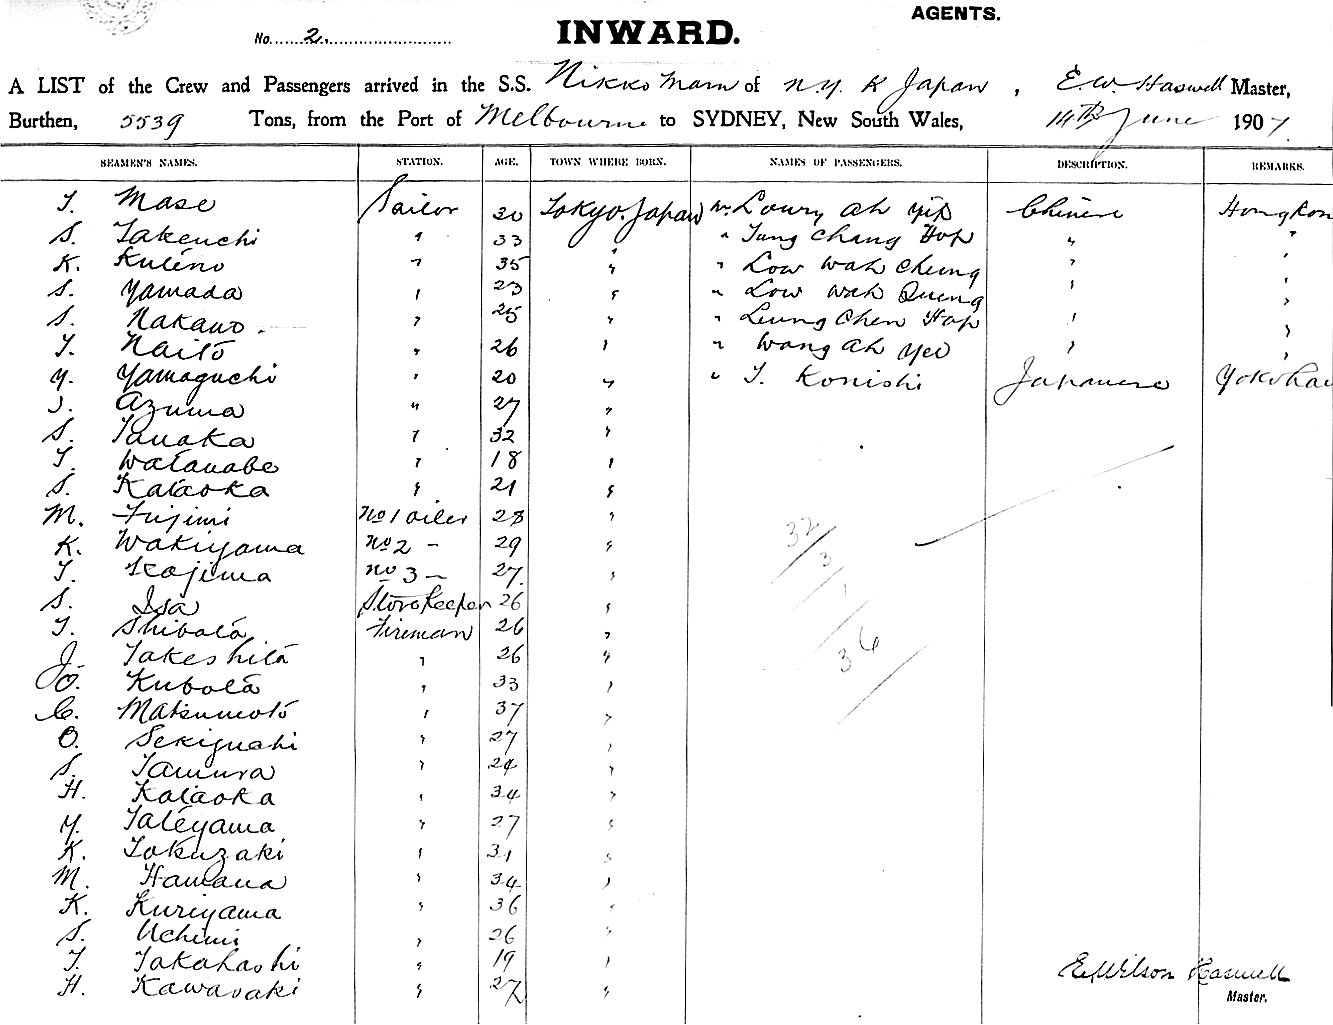 AGENTS.
No. 2. INWARD.
A LIST of the Crew and Passengers arrived in the S.S. Nikko Maru of N.Y.K Japan, E.W. Haswell Master,
Burthen, 5539 Tons, from the Port of Melbourne to SYDNEY, New South Wales, 14th June 1907.
SEAMEN'S NAMES. STATION. AGE. TOWN WHERE BORN. NAMES OF PASSENGERS. DESCRIPTION. REMARKS.
T. Mase Sailor 20 Tokyo. Japan Mr. Lowry Ah Yip Chinese Hongkon
S. Takeuchi " 33 " " Tung Chang Hop " "
K. " 35 " " Low Wah Cheung " "
S. Yamada " 23 " " Low Wah Queng " "
S. Nakano. " 25 " " Leung Chen Hop " "
T. Naito " 26 " " Wong Ah Yee " "
Y. Yamaguchi " 20 " " T. Konishi Japanese Yokoha
J. Azuma " 27 "
S. Tanaka " 32 "
T. Watanabe " 18 "
S. Kataoka " 21 "
M. Fujimi No 1 oiler 28 "
K. Wakiyama No 2 - 29 " 32
T. Kojima No 3 - 27 " 3
S. Isa Storekeeper 26 " 1
T. Shibata Fireman 26 "
J. Takeshita " 26 " 36
O. Kubota " 33 "
C. Matsumoto " 37 "
O. Sekiguchi " 27 "
S. Tamura " 24 "
H. Kataoka " 34 "
Y. Tateyama " 27 "
K. Tokuzaki " 31 "
M. Hamana " 34 "
K. Kuriyama " 36 "
S. Uchimi " 26 "
T. Takahashi " 19 "
H. Kawasaki " 27 "
E. Wilson Haswell
Master.